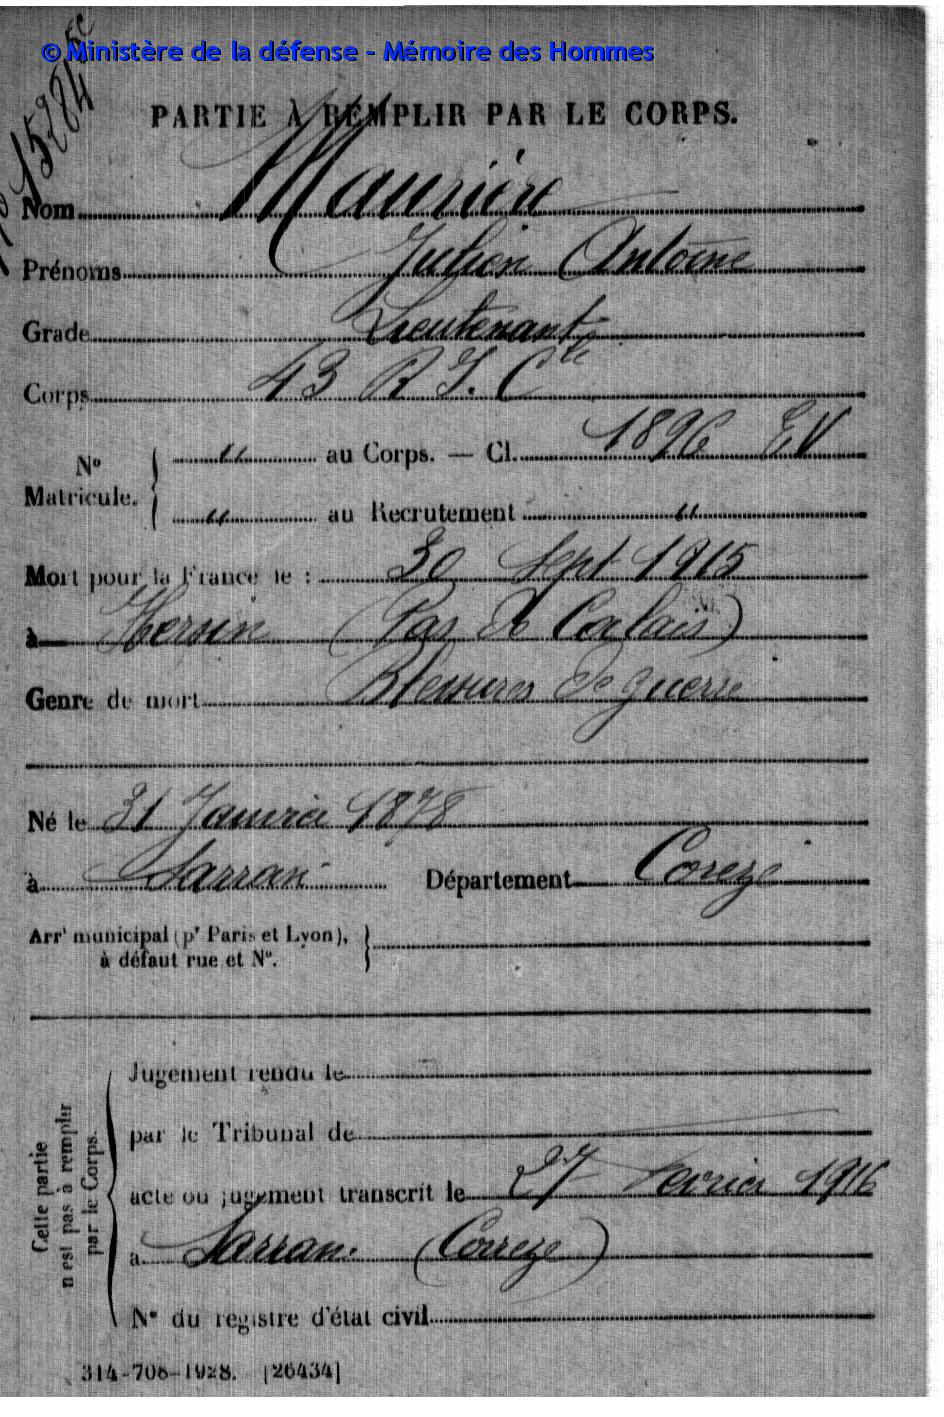 © Ministère de la défense - Mémoire des Hommes
15284
PARTIE À REMPLIR PAR LE CORPS.
Nom Maurière
Prénoms Julien Antoine
Grade Lieutenant
Corps 43 R I. Cle
No Matricule. " au Corps. — Cl. 1896 EV
" au Recrutement "
Mort pour la France le : 30 Sept 1915
à Hersin (Pas de Calais)
Genre de mort Blessures de guerre
Né le 31 Janvier 1878
à Sarran Département Corèze
Arrt municipal (pr Paris et Lyon),
à défaut rue et No.
Cette partie
n'est pas à remplir
par le Corps.
Jugement rendu le
par le Tribunal de
acte ou jugement transcrit le 27 Fevrier 1916
à Sarran. (Correze)
No du registre d'état civil
314-708-1928. [26434]